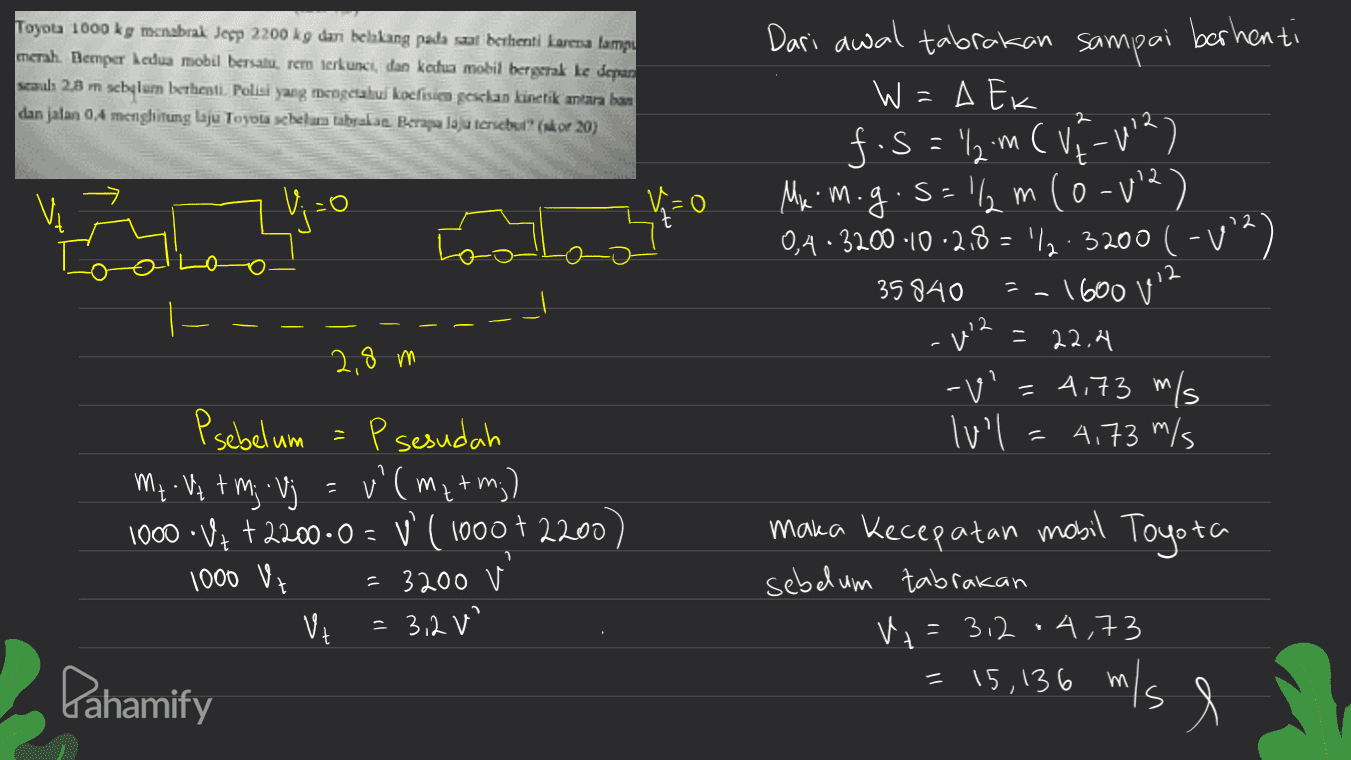 Toyota 1000 kg menabrak Jeep 2200 kg dari belakang pada saat berhenti karena lampu
merah. Bemper kedua mobil bersatu, rem terkunci, dan kedua mobil bergerak ke depan
sejauh 2,8 m sebelum berhenti. Polisi yang mengetahui koefisien gesekan kinetik antara ban
dan jalan 0,4 menghitung laju Toyota sebelum tabrakan. Berapa laju tersebut? (skor 20)
V_t →
V_j = 0
V_t = 0
2,8 m
P sebelum = P sesudah
m_t · V_t + m_j · V_j = v' (m_t + m_j)
1000 · V_t + 2200 · 0 = v' (1000 + 2200)
1000 V_t = 3200 v'
V_t = 3,2 v'
Pahamify
Dari awal tabrakan sampai berhenti
W = Δ Ek
f · s = 1/2 · m (V_t² - v'²)
μk · m · g · s = 1/2 m (0 - v'²)
0,4 · 3200 · 10 · 2,8 = 1/2 · 3200 (-v'²)
35840 = -1600 v'²
-v'² = 22,4
-v' = 4,73 m/s
|v'| = 4,73 m/s
maka kecepatan mobil Toyota
sebelum tabrakan
V_t = 3,2 · 4,73
= 15,136 m/s